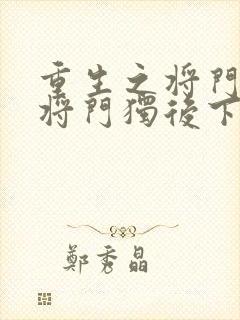 重生之将門
将門獨後下
鄭秀晶